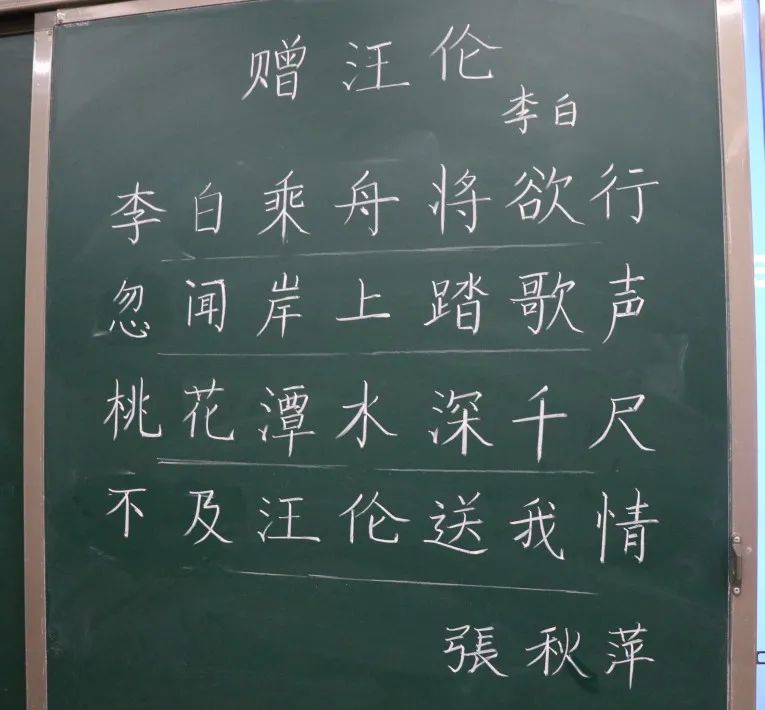 赠汪伦
李白
李白乘舟将欲行
忽闻岸上踏歌声
桃花潭水深千尺
不及汪伦送我情
張秋萍